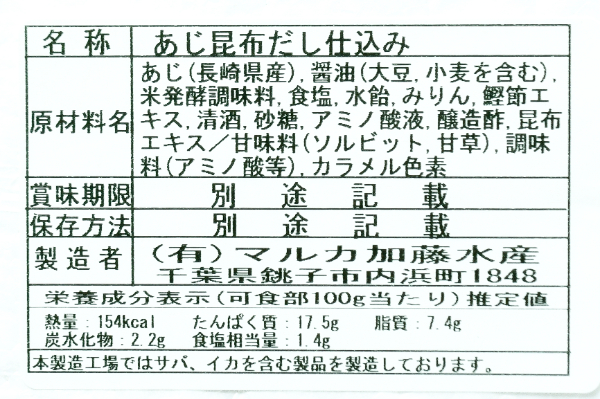 名称 あじ昆布だし仕込み
あじ(長崎県産),醤油(大豆,小麦を含む),
米発酵調味料,食塩,水飴,みりん,鰹節エ
原材料名 キス,清酒,砂糖,アミノ酸液,醸造酢,昆布
エキス／甘味料(ソルビット,甘草),調味
料(アミノ酸等),カラメル色素
賞味期限 別途記載
保存方法 別途記載
製造者 (有)マルカ加藤水産
千葉県銚子市内浜町1848
栄養成分表示(可食部100g当たり)推定値
熱量:154kcal たんぱく質:17.5g 脂質:7.4g
炭水化物:2.2g 食塩相当量:1.4g
本製造工場ではサバ、イカを含む製品を製造しております。